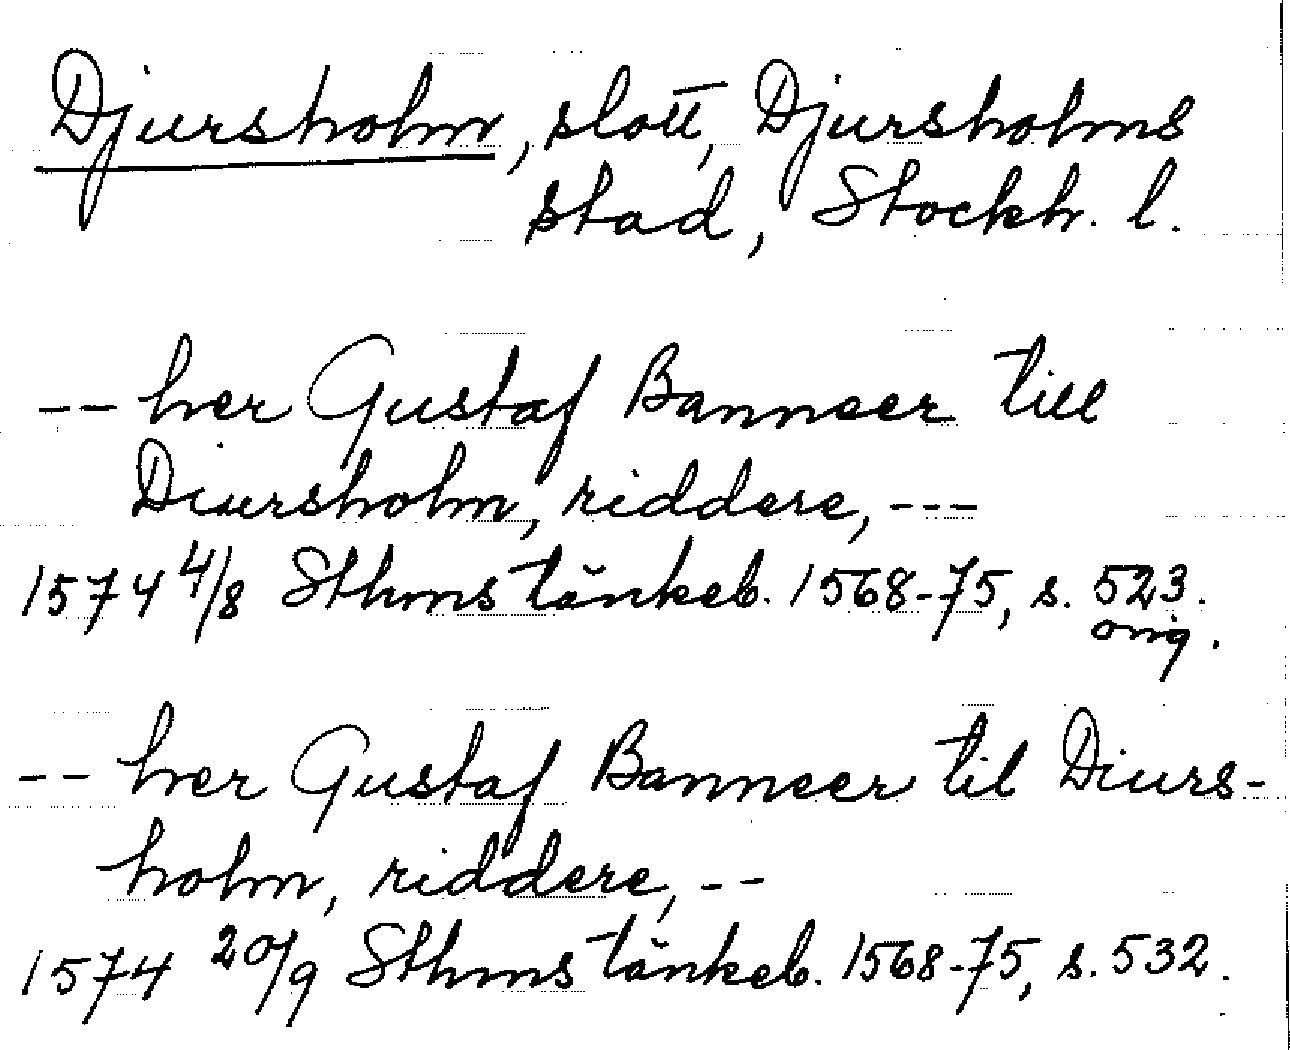 Djursholm, slott, Djursholms
stad, Stockh. l.
-- her Gustaf Banneer till
Diursholm, riddere, ---
1574 4/8 Sthms tänkeb. 1568-75, s. 523.
orig.
-- her Gustaf Banneer til Diurs-
holm, riddere, --
1574 20/9 Sthms tänkeb. 1568-75, s. 532.